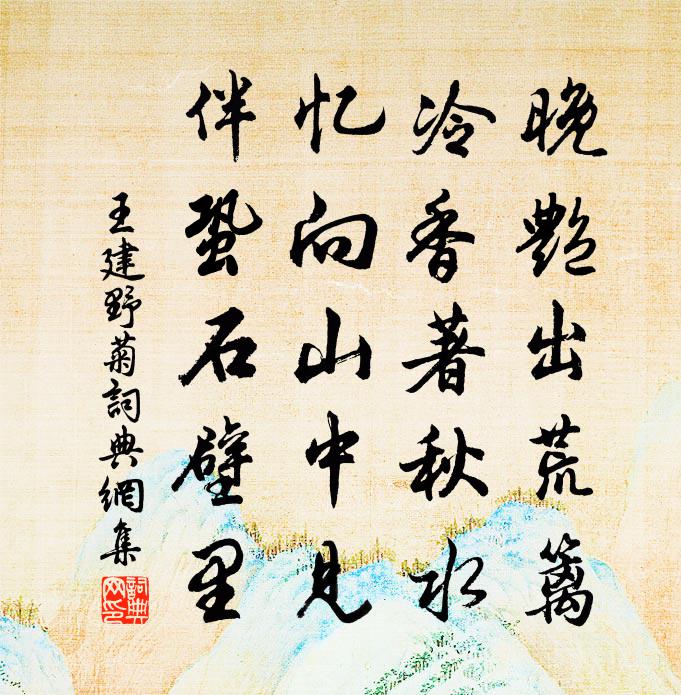 晚艷出荒籬
冷香著秋水
忆向山中見
伴蛩石壁里
王建野菊詞典網集
詞典网印